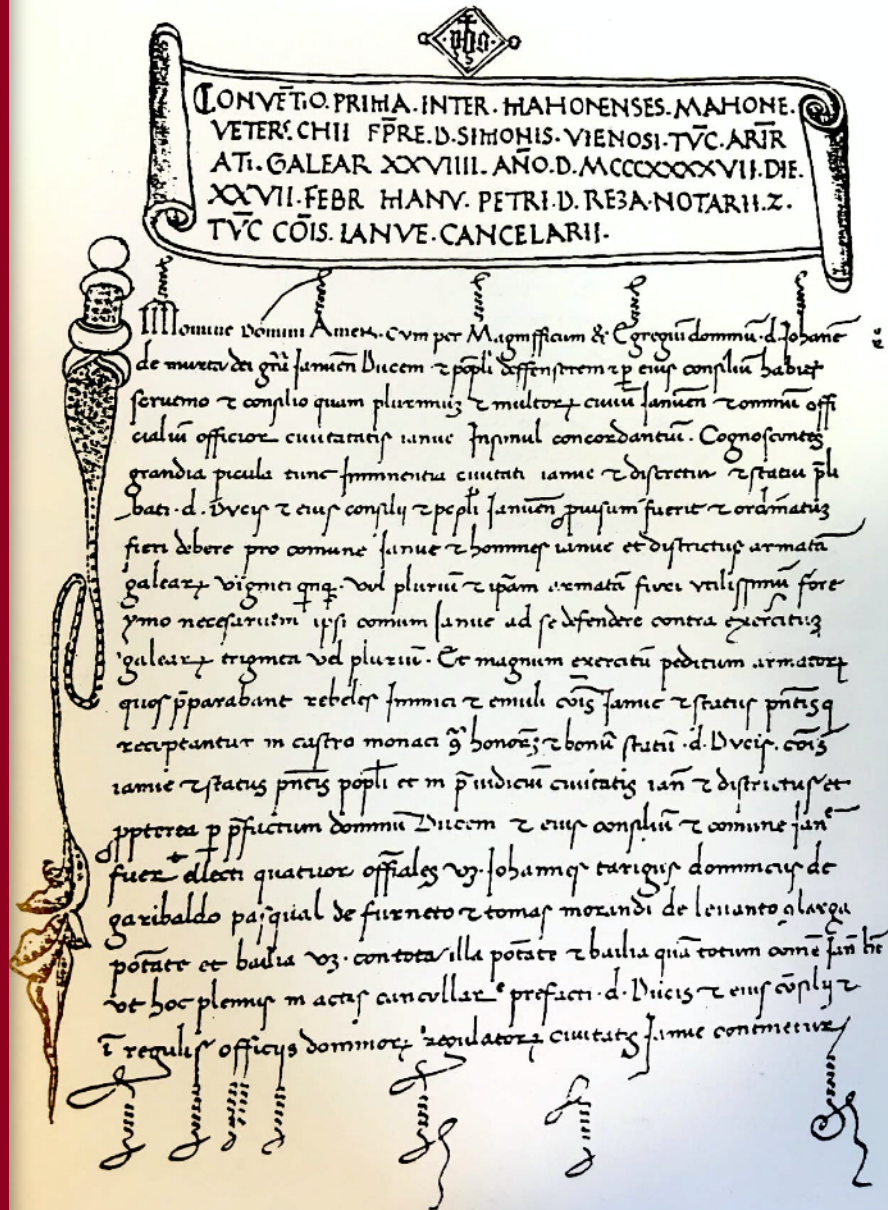 yhs
CONVĒTIO. PRIMA. INTER. MAHONENSES. MAHONE.
VETERS. CHII FP̄RE. D. SIMONIS. VIENOSI. TV̄C. ARĪR
ATI. GALEAR XXVIIII. AÑO. D. MCCCXXXXVII. DIE.
XXVII. FEBR MANV. PETRI. D. REZA. NOTARII. Z.
TV̄C CŌIS. IANVE. CANCELARII.
Domini Amen. Cvm per Magnifficum & Egregiū dominū. d. Johanē
de murta dei grā Januen̄ Ducem ⁊ popl̄i deffensorem ⁊ p eius consiliū habito
⁊ consilio quam plurimuȝ ⁊ multoꝝ ciuiū Januen̄ ⁊ omniū offi
cialiū officior ciuitatatis ianue Insimul concordantiū. Cognoscentes
grandia picula tunc Imminentia ciuitati ianue ⁊ districtui ⁊ statui
bati. d. Ducis ⁊ eius consilij ⁊ popl̄i Januen̄ ꝓuisum fuerit ⁊ ordinatuȝ
fieri debere pro comune Janue ⁊ homines ianue et districtus armatā
galeaꝝ viginti qnqꝫ. vel pluriū ⁊ ipam armatā fieri vtilissimū fore
ymo necesarium ipsi comuni Janue ad se defendere contra exercituȝ
galeaꝝ triginta vel pluriū. Et magnum exercitū peditum armatoꝝ
quos p̄parabant rebeles Inimici ⁊ emuli cōis Janue ⁊ status pn̄tis q
receptantur in castro monaci ꝯ honorē ⁊ bonū statū. d. Ducis. cōis
ianue ⁊ status pn̄tis popl̄i et in p̄iudiciū ciuitatis ian̄ ⁊ districtus et
ꝓpterea p p̄factum dominū Ducem ⁊ eius consiliū ⁊ comune Jan̄
fuer electi quatuor offiales vȝ. Johannes tarigus dominicus de
garibaldo pasqual de furneto ⁊ tomas morandi de leuanto ꝯ larga
potāte et bailia vȝ. con tota illa potāte ⁊ bailia quā totum comē Jan̄ ht
vt hoc plenius in actis cancellar prefacti. d. Ducis ⁊ eius cōsilij ⁊
ī regulis officijs dominoꝝ regulatoꝝ ciuitatis Janue continetur